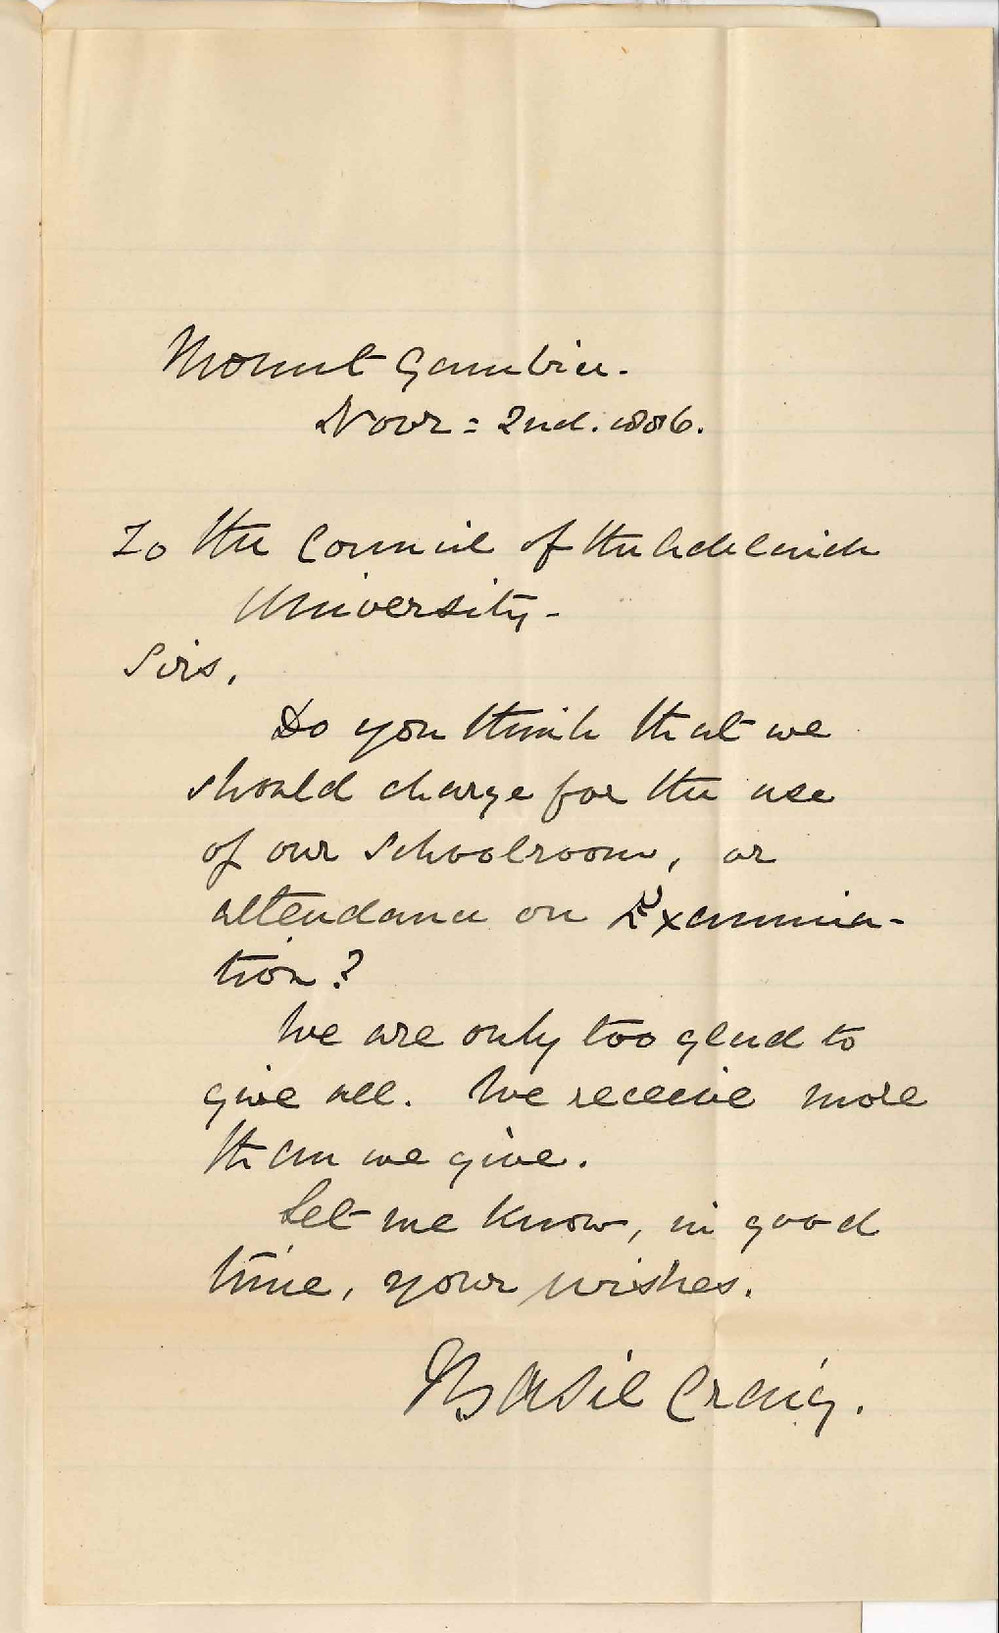 Mount Gambier.
Novr = 2nd. 1886.
To the Council of the Adelaide
University -
Sirs,
Do you think that we
should charge for the use
of our Schoolroom, or
attendance on Examina-
tion?
We are only too glad to
give all. We receive more
than we give.
Let me know, in good
time, your wishes.
Basil Craig.